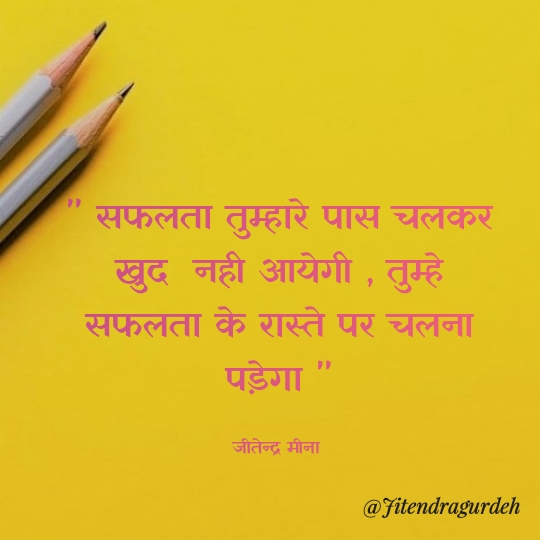 " सफलता तुम्हारे पास चलकर
खुद नही आयेगी , तुम्हे
सफलता के रास्ते पर चलना
पड़ेगा "
जीतेन्द्र मीना
@Jitendragurdeh